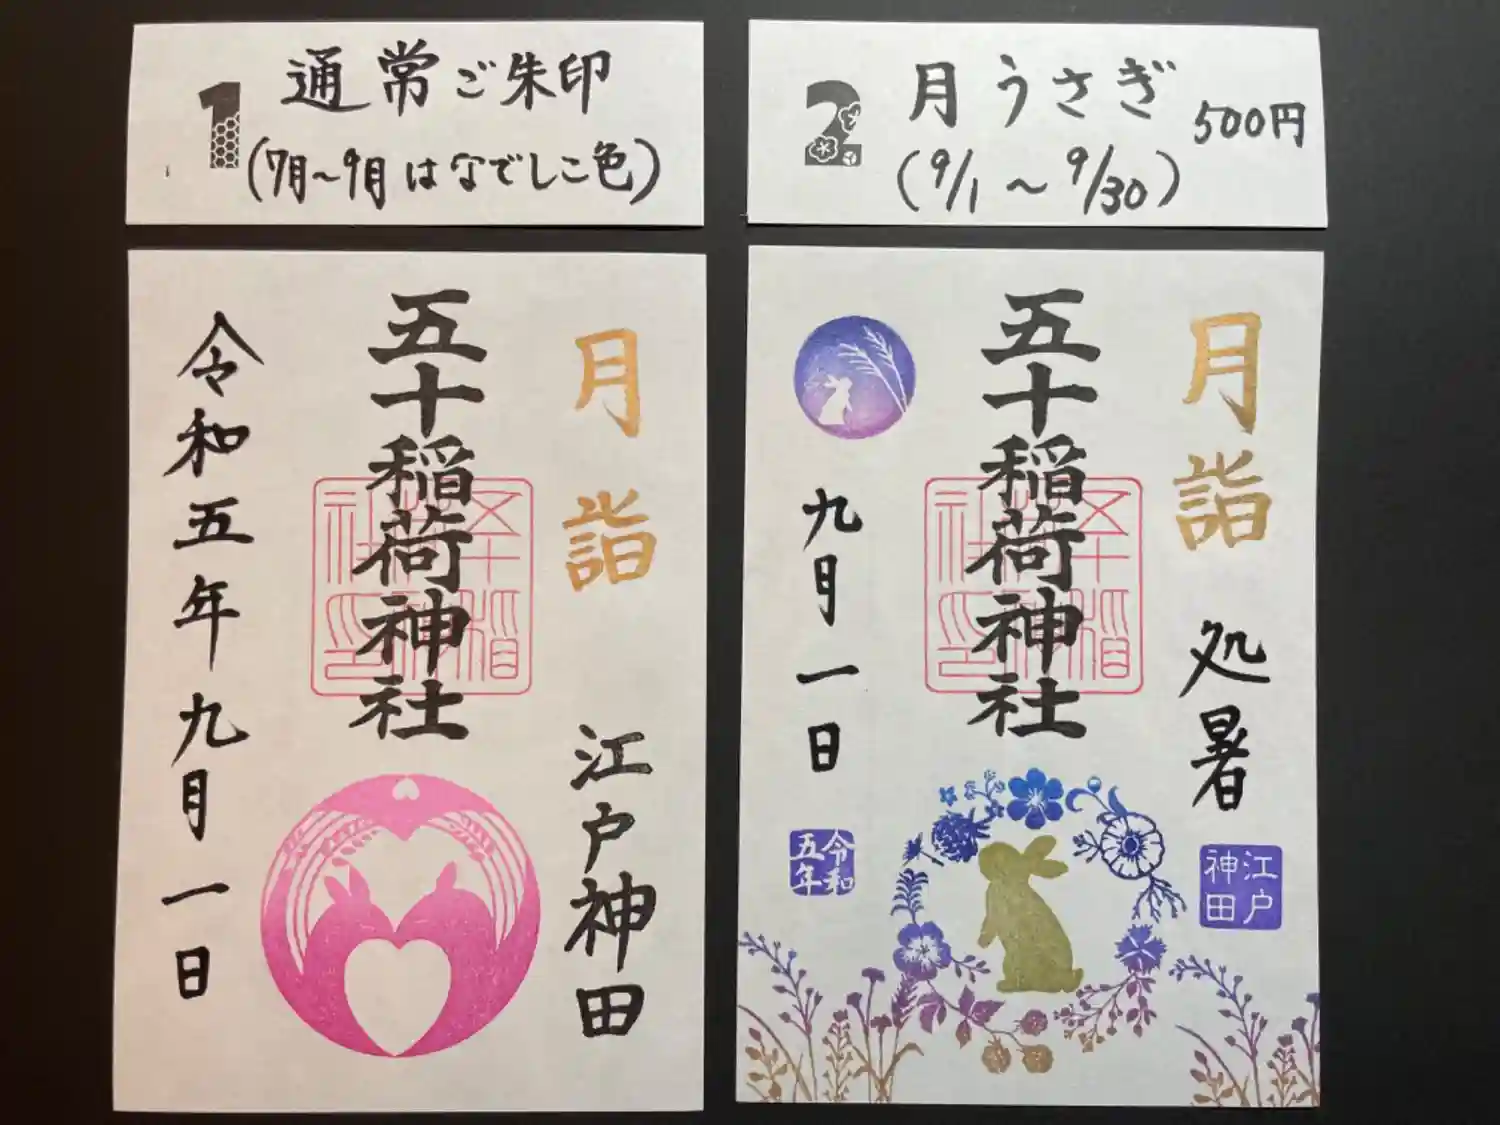 1
通常ご朱印
(7月～9月はなでしこ色)
月詣
江戸神田
五十稲荷神社
令和五年九月一日
2
月うさぎ
500円
(9/1～9/30)
月詣
処暑
江戸神田
五十稲荷神社
九月一日
令和五年